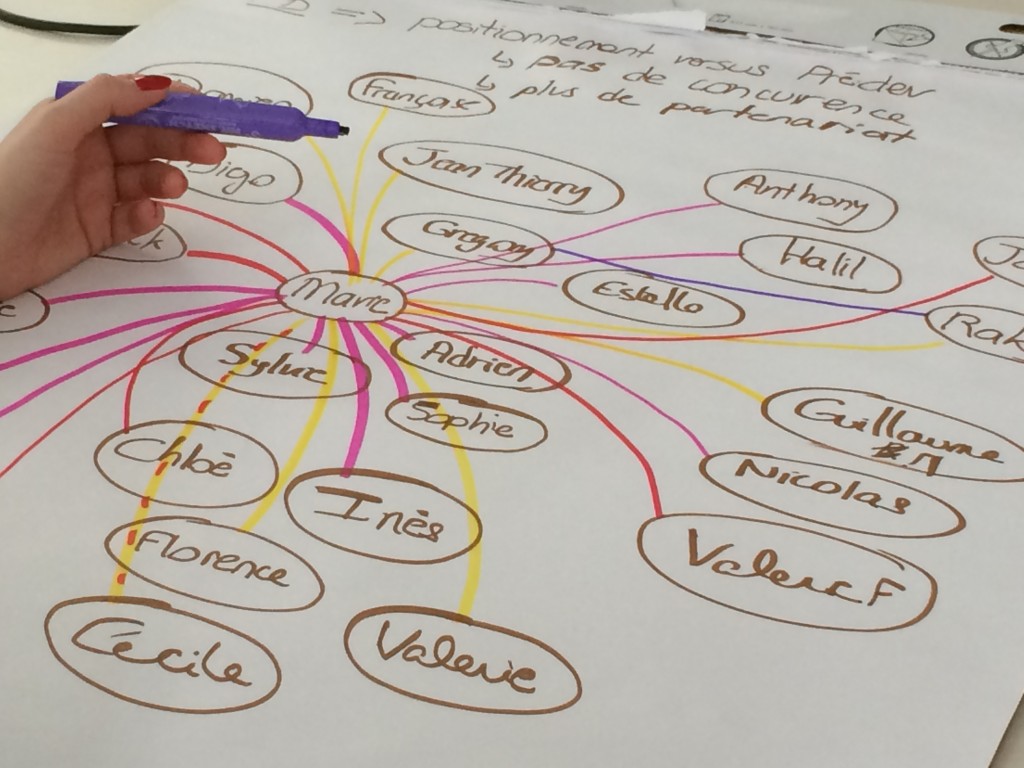 => positionnement versus Prédev
↳ pas de concurrence
↳ plus de partenariat
Française
Jean Thierry
Anthony
Digo
Gregory
Halil
Marie
Estelle
Rak
Sylvie
Adrien
Sophie
Guillaume
Chloé
Inès
Nicolas
Florence
Valérie F
Cécile
Valerie